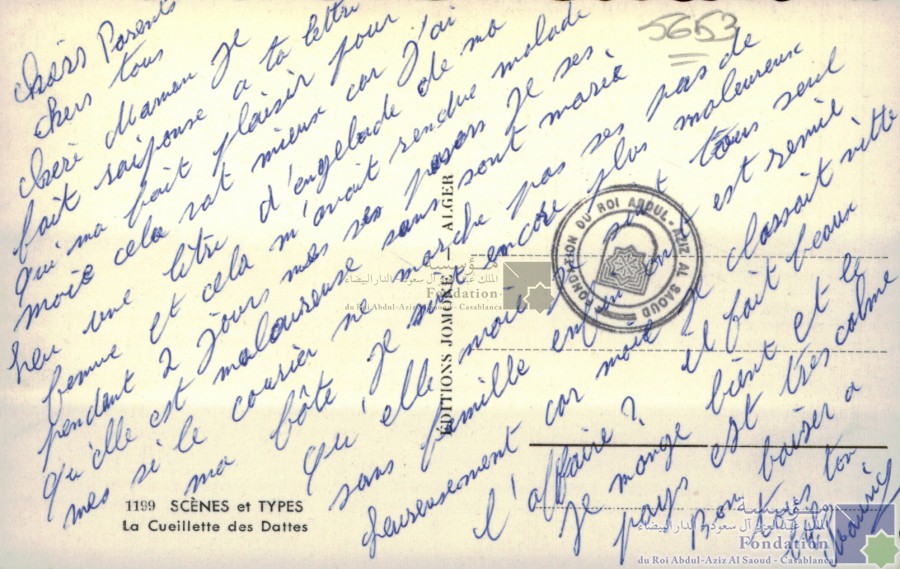 5653
chèrs Parents
chers tous
cherè Maman je
fait raiponse a ta lettre
qui ma fait plaisir pour
moie cela vat mieux car j'ai
heu une lètre d'engelade de ma
femme et cela m'avait rendue malade
pendant 2 jours mes ses passer je ses
qu'elle est maloureuse sans sont mariè
mes si le courier ne marche pas ses pas de
ma fôte je suit encore plus maleureux
qu'elle moie je suit tous seul
sans famille enfin est remie
heureusement car moie je classait vitte
l'affaire ? il fait beaux
je mange bient et le
pays est très calme
bon baiser a
tous ton
ÉDITIONS JOMONE — ALGER
1199 SCÈNES et TYPES
La Cueillette des Dattes
FONDATION DU ROI ABDUL-AZIZ AL SAOUD
مؤسسة
الملك عبد العزيز آل سعود - الدار البيضاء
Fondation
du Roi Abdul-Aziz Al Saoud - Casablanca
مؤسسة
الملك عبد العزيز آل سعود - الدار البيضاء
Fondation
du Roi Abdul-Aziz Al Saoud - Casablanca